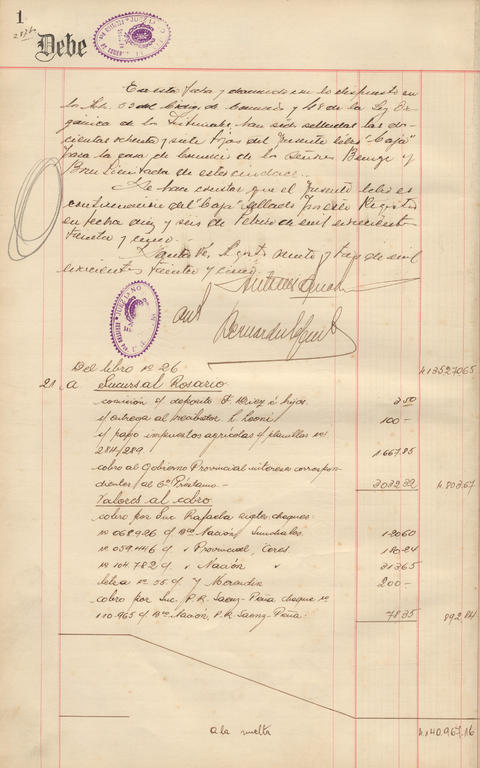 1
Debe
En esta fecha y dando cumplimiento a lo dispuesto en
los Arts. 53 del Código de Comercio y 48 de la Ley Or-
gánica de los Tribunales, han sido selladas las do-
cientas ochenta y siete fojas del presente libro "Caja"
para la casa de comercio de los Señores Bunge y
Born Limitada de esta ciudad.
Se hace constar que el presente libro es
continuación del "Caja" sellado por este Registro
en fecha diez y seis de Febrero de mil novecientos
treinta y cinco.
Santa Fé, Agosto veinte y de mil
novecientos treinta y cinco.
Del libro nº 26
4.135.270.65
21 a Sucursal Rosario
comisión s/ deposito é hijos 2.50
s/ entrega al L. Leoni 100 -
s/ pago impuestos agrícolas s/ planillas nos
284/289 1667.85
cobro al Gobierno Provincial intereses correspon-
dientes al 6º Préstamo - 3032.32 4.803.67
Valores al cobro
cobro por Suc. Rafaela sigtes. cheques:
nº 068926 c/ Bco Nación, Sunchales 120.60
nº 059446 c/ " Provincial, Ceres 180.24
nº 104782 c/ " Nación " 313.65
letra nº 35 c/ y 200 -
cobro por Suc. P.R. Saenz-Peña cheque nº
110.965 c/ Bco Nación, P.R. Saenz-Peña 78.35 892.84
a la vuelta 4.140.967.16